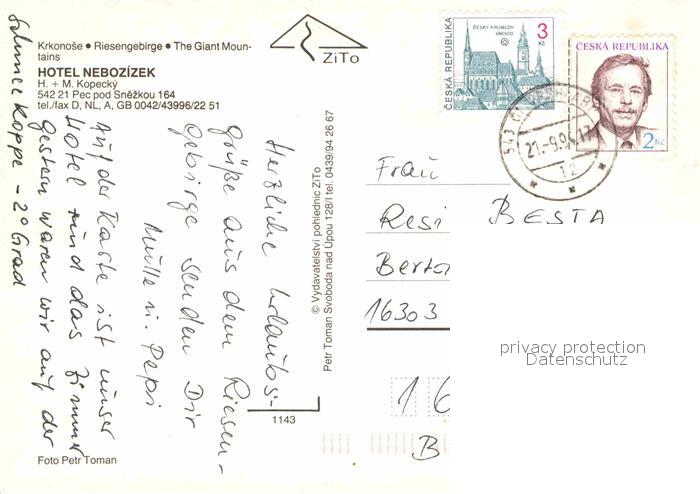 Krkonoše • Riesengebirge • The Giant Moun-
tains
HOTEL NEBOZÍZEK
H. + M. Kopecký
542 21 Pec pod Sněžkou 164
tel./fax D, NL, A, GB 0042/43996/22 51
ZiTo
Herzliche Urlaubs-
grüße aus dem Riesen-
gebirge senden Dir
u. Pepi
Auf der Karte ist unser
Hotel und das Zimmer
Gestern waren wir auf der
Schneekoppe - 2° Grad
© Vydavatelství pohlednic ZiTo
Petr Toman Svoboda nad Úpou 128/I tel. 0439/94 26 67
1143
Foto Petr Toman
ČESKÁ REPUBLIKA
ČESKÝ KRUMLOV
UNESCO
3 Kč
ČESKÁ REPUBLIKA
2 Kč
543
21.-9.9
12
Frau
Resi BESTA
Berto
16303
16
B
privacy protection
Datenschutz